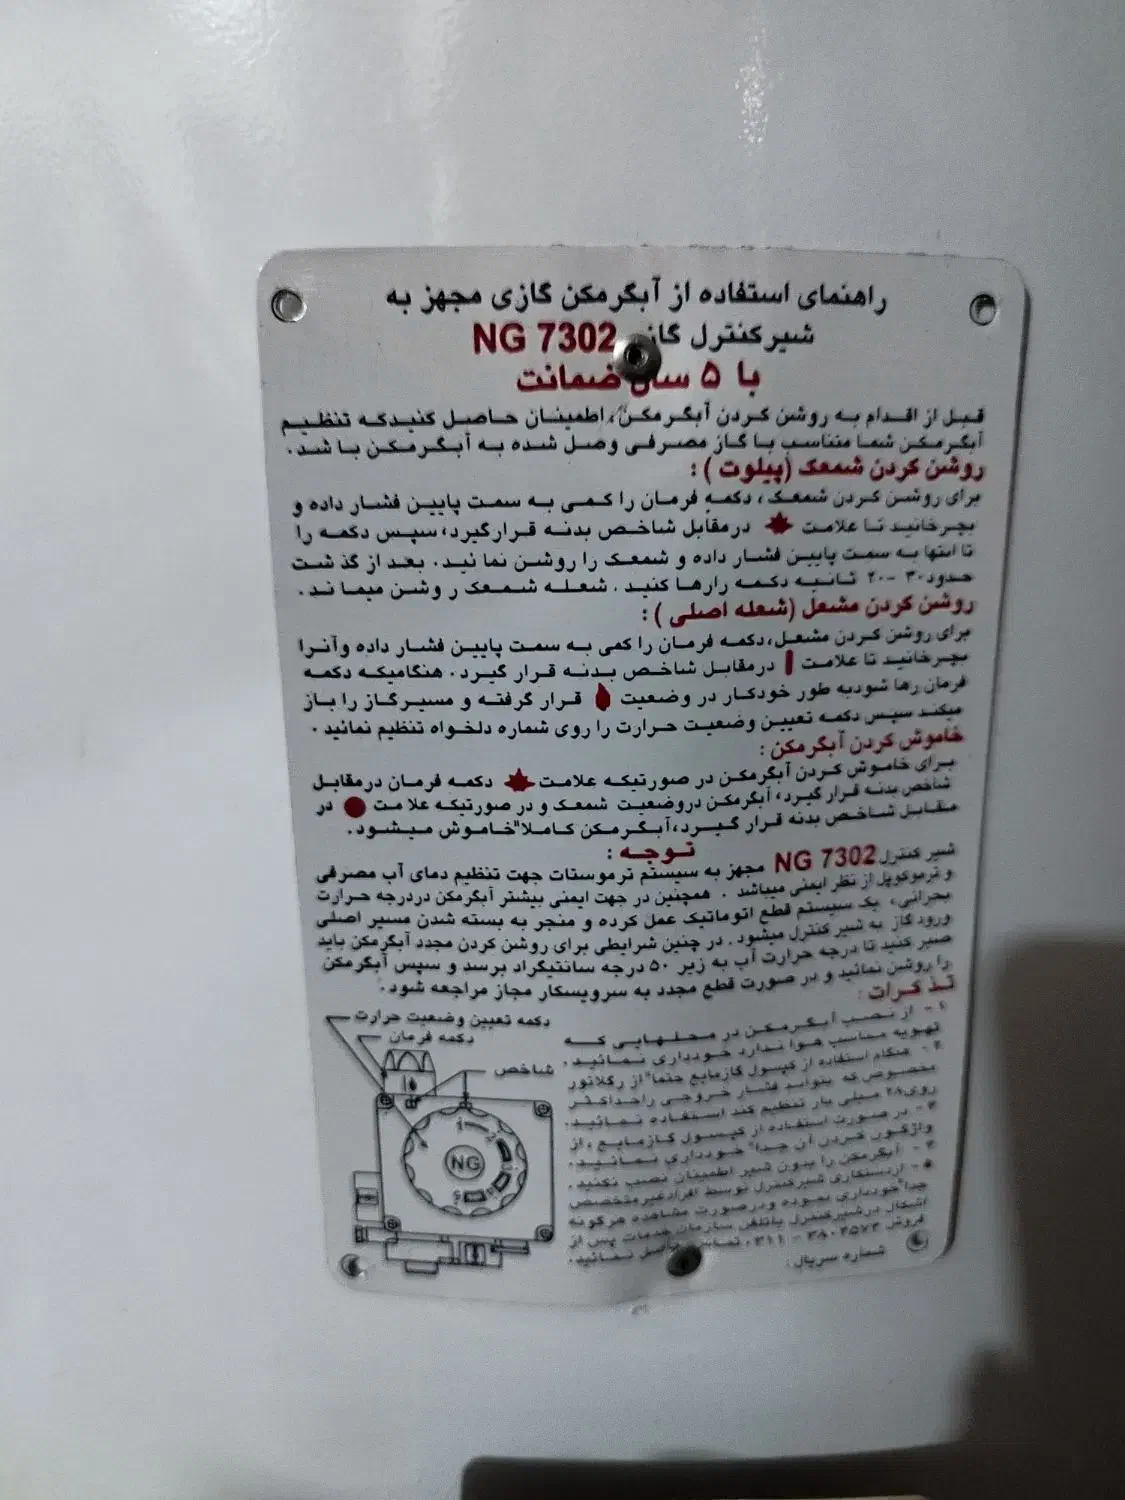 راهنمای استفاده از آبگرمکن گازی مجهز به
شیر کنترل گاز NG 7302
با ۵ سال ضمانت
قبل از اقدام به روشن کردن آبگرمکن، اطمینان حاصل کنیدکه تنظیم
آبگرمکن شما متناسب با گاز مصرفی وصل شده به آبگرمکن با شد.
روشن کردن شمعک (پیلوت ) :
برای روشن کردن شمعک ، دکمه فرمان را کمی به سمت پایین فشار داده و
بچرخانید تا علامت در مقابل شاخص بدنه قرارگیرد، سپس دکمه را
تا انتها به سمت پایین فشار داده و شمعک را روشن نما ئید. بعد از گذ شت
حدود ۳۰ -۲۰ ثانیه دکمه رارها کنید . شعله شمعک ر وشن میما ند.
روشن کردن مشعل (شعله اصلی ) :
برای روشن کردن مشعل،دکمه فرمان را کمی به سمت پایین فشار داده وآنرا
بچرخانید تا علامت درمقابل شاخص بدنه قرار گیرد. هنگامیکه دکمه
فرمان رها شودبه طور خودکار در وضعیت قرار گرفته و مسیرگاز را باز
میکند سپس دکمه تعیین وضعیت حرارت را روی شماره دلخواه تنظیم نمائید .
خاموش کردن آبگرمکن :
برای خاموش کردن آبگرمکن در صورتیکه علامت دکمه فرمان درمقابل
شاخص بدنه قرار گیرد، آبگرمکن دروضعیت شمعک و در صورتیکه علا مت در
مقابل شاخص بدنه قرار گیرد،آبگرمکن کاملا" خاموش میشود.
توجه :
شیر کنترل NG 7302 مجهز به سیستم ترموستات جهت تنظیم دمای آب مصرفی
و ترموکوپل از نظر ایمنی میباشد . همچنین در جهت ایمنی بیشتر آبگرمکن دردرجه حرارت
بحرانی، یک سیستم قطع اتوماتیک عمل کرده و منجر به بسته شدن مسیر اصلی
ورود گاز به شیر کنترل میشود. در چنین شرایطی برای روشن کردن مجدد آبگرمکن باید
صبر کنید تا درجه حرارت آب به زیر ۵۰ درجه سانتیگراد برسد و سپس آبگرمکن
را روشن نمائید و در صورت قطع مجدد به سرویسکار مجاز مراجعه شود.
تذکرات :
۱ - از نصب آبگرمکن در محلهایی که
تهویه مناسب هوا ندارد خودداری نمائید.
۲ - هنگام استفاده از کپسول گازمایع حتما" از رگلاتور
مخصوص که بتواند فشار خروجی راحداکثر
روی ۲۸ میلی بار تنظیم کند استفاده نمائید.
۳ - در صورت استفاده از کپسول گازمایع ، از
واژگون کردن آن جدا" خودداری نمائید.
۴ - آبگرمکن را بدون شیر اطمینان نصب نکنید.
۵ - ازدستکاری شیرکنترل توسط افرادغیرمتخصص
جدا" خودداری نموده ودرصورت مشاهده هرگونه
اشکال درشیرکنترل باتلفن سازمان خدمات پس از
فروش تماس حاصل نمائید.
شماره سریال :
دکمه تعیین وضعیت حرارت
دکمه فرمان
شاخص
NG